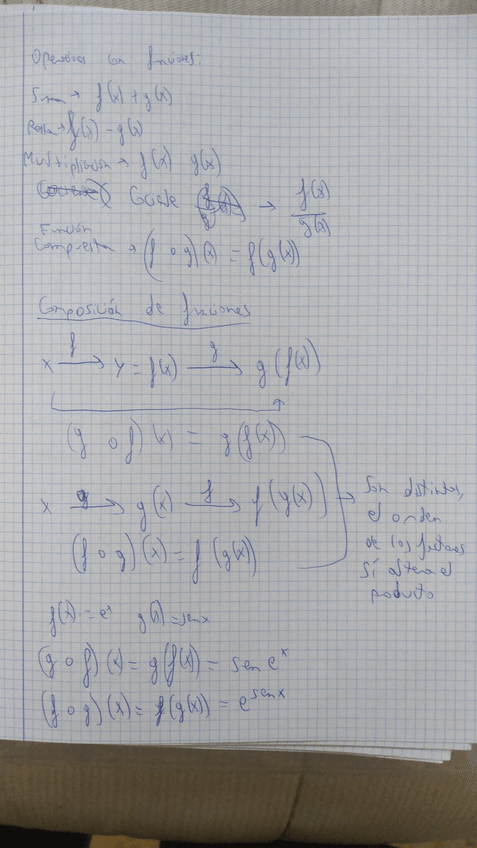 Operaciones con funciones:
Suma → f(x) + g(x)
Resta → f(x) - g(x)
Multiplicación → f(x) g(x)
Cociente → f(x)/g(x)
Función
Compuesta → (f o g)(x) = f(g(x))
Composición de funciones
x f→ y = f(x) g→ g(f(x))
(g o f)(x) = g(f(x))
x g→ g(x) f→ f(g(x))
(f o g)(x) = f(g(x))
Son distintas,
el orden
de los factores
sí altera el
producto
f(x) = eˣ g(x) = sen x
(g o f)(x) = g(f(x)) = sen eˣ
(f o g)(x) = f(g(x)) = e^sen x